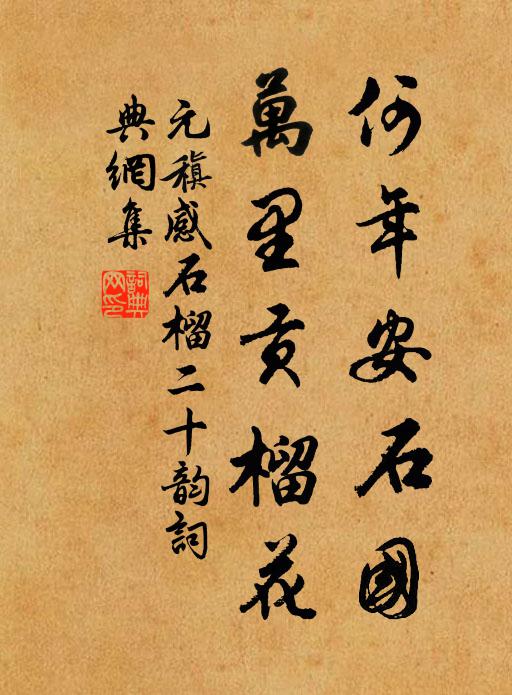 何年安石國
萬里貢榴花
元稹感石榴二十韵詞
典網集
詞典网印